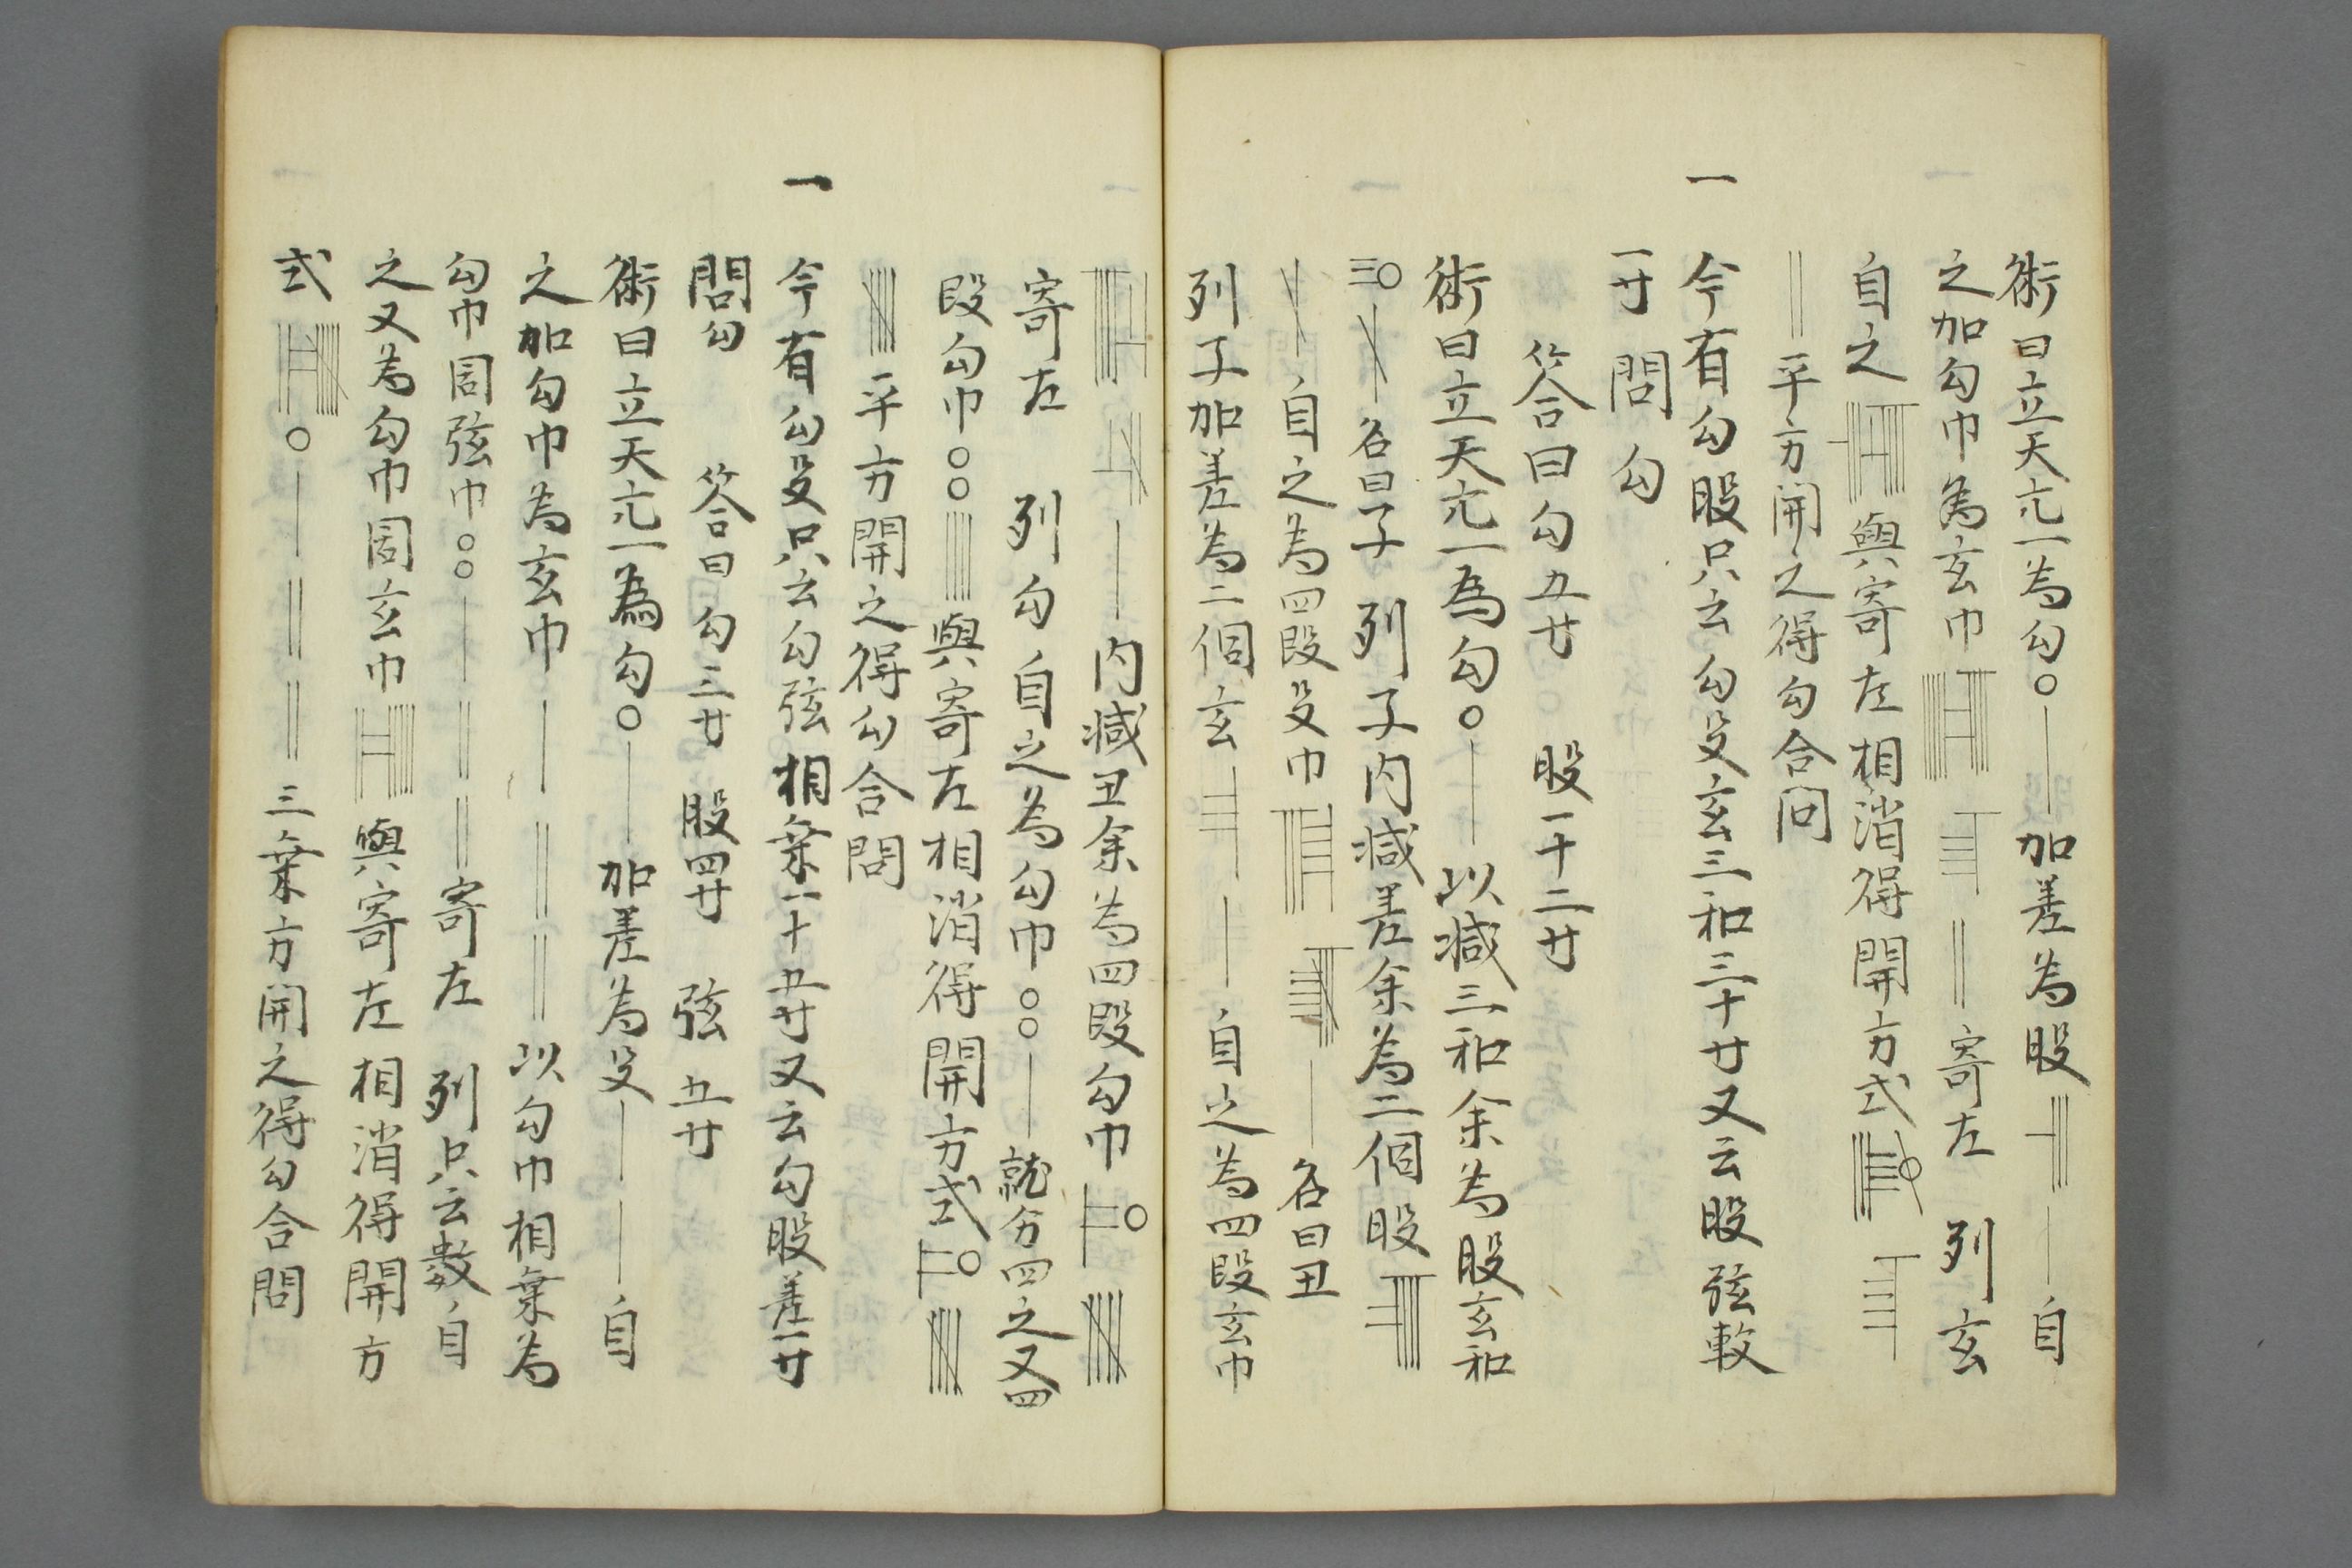 術曰立天元一為勾〇| 加差為股 || 自
之加勾巾為玄巾 || 寄左 列玄
自之 與寄左相消得開方式
|| 平方開之得勾合问
一 今有勾股只云勾殳玄三和三十寸又云股弦較
一寸 問勾
答曰勾五寸 股一十二寸
術曰立天元一為勾〇| 以减三和余為股玄和
三〇 名曰子 列子内减差余為二個股
| 自之為四段殳巾 | 名曰丑
列子加差為二個玄 | 自之為四段玄巾
| 内减丑余為四段勾巾
寄左 列勾自之為勾巾〇〇| 就分四之又四
段勾巾〇〇|||| 與寄左相消得開方式
平方開之得勾合問
一 今有勾殳只云勾弦相乗一十五寸又云勾股差一寸
問勾 答曰勾三寸 股四寸 弦五寸
術曰立天元一為勾〇| 加差為殳|| 自
之加勾巾為玄巾 | || || 以勾巾相乗為
勾巾因弦巾〇〇| || || 寄左 列只云数自
之又為勾巾因玄巾 與寄左相消得開方
式 〇| || || 三乗方開之得勾合問